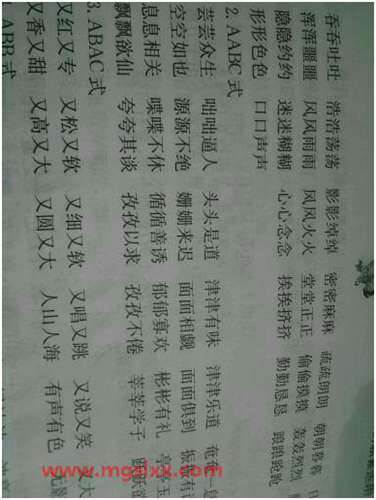 吞吞吐吐 浩浩荡荡 影影绰绰 密密麻麻 疏疏朗朗 朝朝暮暮
浑浑噩噩 风风雨雨 风风火火 堂堂正正 偷偷摸摸 轰轰烈烈
隐隐约约 迷迷糊糊 心心念念 挨挨挤挤 勤勤恳恳 踉踉跄跄
形形色色 口口声声
2. AABC式
芸芸众生 咄咄逼人 头头是道 津津有味 津津乐道 奄
空空如也 源源不绝 姗姗来迟 面面相觑 面面俱到 振振有
息息相关 喋喋不休 循循善诱 郁郁寡欢 彬彬有礼 亭亭玉
飘飘欲仙 夸夸其谈 孜孜以求 孜孜不倦 莘莘学子
3. ABAC式
又红又专 又松又软 又细又软 又唱又跳 又说又笑 又大
又香又甜 又高又大 又圆又大 人山人海 有声有色
ABB式